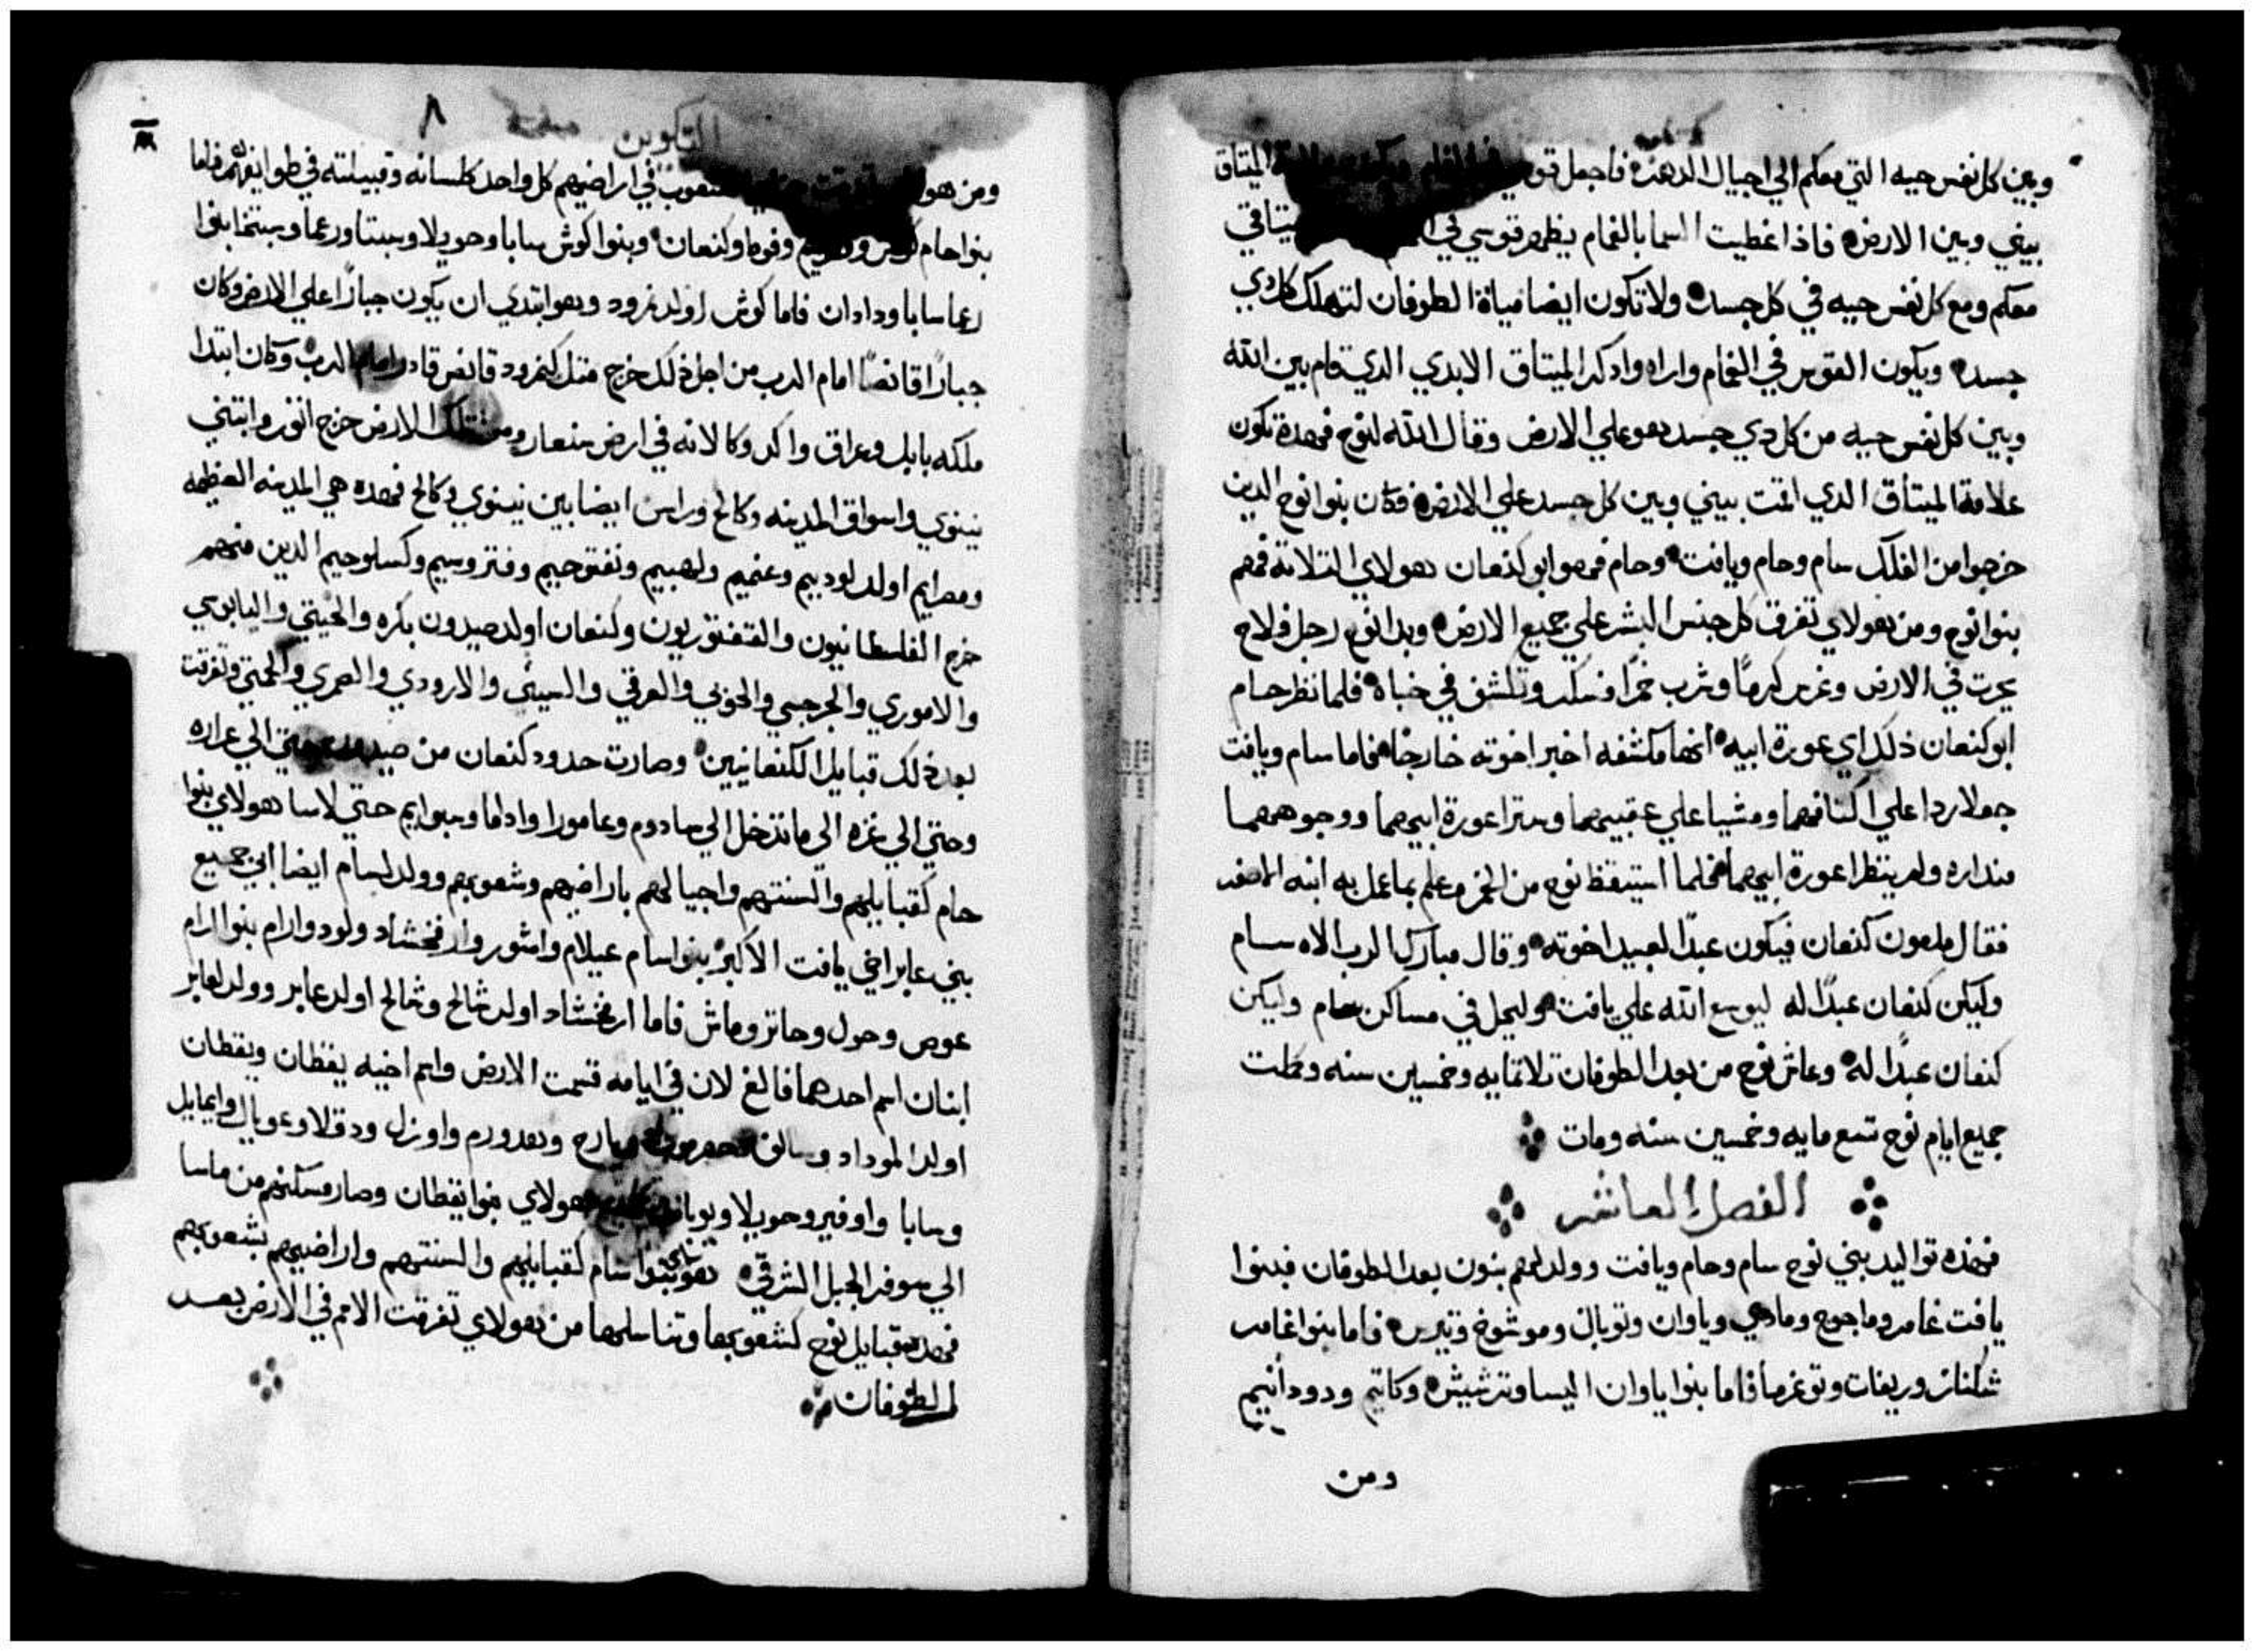 وبين كل نفس حيه التي معكم الي اجيال الدهره فاجعل قوسي في الغمام الميتاق
بيني وبين الارض فاذا غطيت السما بالغمام يظهر قوسي في ميتاقي
معكم ومع كل نفس حيه في كل جسد ولا تكون ايضا مياة الطوفان لتهلك كل دي
جسد ويكون القوس في الغمام واراه وادكر الميتاق الابدي الدي قام بين الله
وبين كل نفس حيه من كل دي جسد هو علي الارض وقال الله لنوح فهده تكون
علامة الميتاق الدي اقمت بيني وبين كل جسد علي الارض فكان بنوا نوح الدين
خرجوا من الفلك سام وحام ويافت وحام فهو ابو كنعان هولاي التلاتة فهم
بنوا نوح ومن هولاي تفرق كل جنس البشر علي جميع الارض وبدا نوح رجل فلاح
يحرت في الارض وغرس كرمًا وشرب خمرًا فسكر وتكشف في خباه فلما نظر حام
ابو كنعان ذلك اي عورة ابيه انها مكشفه اخبر اخوته خارجًا فاما سام ويافت
جعلا ردا علي اكتافهما ومشيا علي عقبيهما وسترا عورة ابيهما ووجوههما
مندارة ولم ينظرا عورة ابيهما فلما استيقظ نوح من الخمر وعلم بما عمل به ابنه الاصغر
فقال ملعون كنعان فيكون عبدًا لعبيد اخوته وقال مبارك الرب الاه سام
وليكن كنعان عبدًا له ليوسع الله علي يافت وليحل في مساكن سام وليكن
كنعان عبدًا له وعاش نوح من بعد الطوفان تلاتمايه وخمسين سنه وكملت
جميع ايام نوح تسع مايه وخمسين سنه ومات
الفصل العاشر
فهده تواليد بني نوح سام وحام ويافت وولد لهم بنون بعد الطوفان فبنوا
يافت غامر وماجوج ومادي وياوان وتوبال وموشوخ وتيرس فاما بنوا غامر
شكناز وريفات وتوغرما فاما بنوا ياوان اليسا وترشيش وكاتيم ودودانيم
ومن
التكوين ٨
ومن هولاي الشعوب في اراضيهم كل واحد كلسانه وقبيلته في طوايفهم فاما
بنوا حام كوش وفوط وكنعان وبنوا كوش سابا وحويلا وسبتا ورعما وسبتخا بنوا
رعما سابا ودادان فاما كوش اولد نمرود وهو ابتدي ان يكون جبارًا علي الارض وكان
جبارًا قانصًا امام الرب من اجل ذلك خرج متل كنمرود قانص قادر امام الرب وكان ابتدا
ملكه بابل وعراق واكد وكالانه في ارض سنعار ومن تلك الارض خرج اتور وابتني
نينوي واسواق المدينه وكالح وراس ايضا بين نينوي وكالح فهده هي المدينه العظيمه
ومصرايم اولد لوديم وعنميم ولهبيم ونفتوحيم وفتروسيم وكسلوحيم الدين منهم
خرج الفلسطانيون والقفتوريون وكنعان اولد صيدون بكره والحيتي واليابوسي
والاموري والجرجسي والحوي والعرقي والسيني والارودي والصمري والحمتي وتفرقت
بعد ذلك قبايل الكنعانيين وصارت حدود كنعان من صيدون حتي الي عراره
وحتي الي غزه الي ما تدخل الي سادوم وعامورا وادما وسبوايم حتي لاسا هولاي بنوا
حام كقبايلهم والسنتهم واجيالهم باراضيهم وشعوبهم وولد لسام ايضا ابي جميع
بني عابر اخي يافت الاكبر بنوا سام عيلام واشور وارفخشاد ولود وارام بنوا ارام
عوص وحول وجاتر وماش فاما ارفخشاد اولد شالح وشالح اولد عابر وولد لعابر
ابنان اسم احدهما فالغ لان في ايامه قسمت الارض واسم اخيه يقظان ويقظان
اولد الموداد وسالف ويارح وهدورم واوزل ودقلا وعوبال وايمايل
وسابا واوفير وحويلا ويوباب هولاي بنوا يقطان وصار مسكنهم من ماسا
الي سوفر الجبل الشرقي هولاي بنوا سام كقبايلهم والسنتهم واراضيهم بشعوبهم
فهده قبايل نوح كشعوبها وتناسلها من هولاي تفرقت الامم في الارض بعد
الطوفان